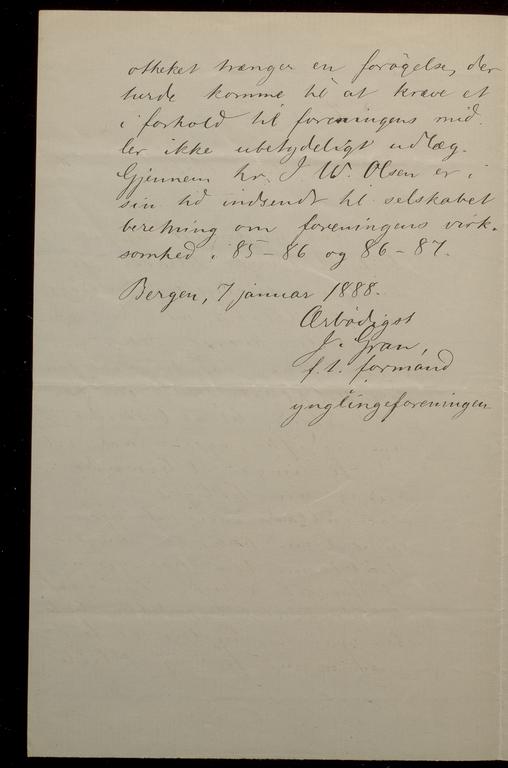 otheket trænger en forøgelse, der
turde komme til at kræve et
i forhold til foreningens mid-
ler ikke ubetydeligt udlæg.
Gjennem hr. J. W. Olsen er i
sin tid indsendt til selskabet
beretning om foreningens virk-
somhed i 85-86 og 86-87.
Bergen, 7 januar 1888.
Ærbødigst
J. Gran,
f. t. formand
i
ynglingeforeningen